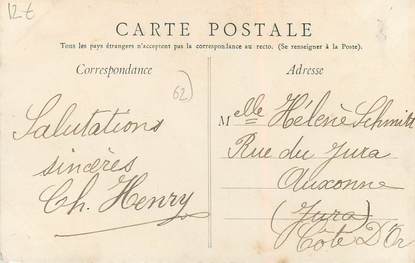 12 t
CARTE POSTALE
Tous les pays étrangers n'acceptent pas la correspondance au recto. (Se renseigner à la Poste).
Correspondance
62
Salutations
sincères
Ch. Henry
Adresse
Melle Hélène Schmitt
Rue du Jura
Auxonne
(Jura)
Côte D'Or